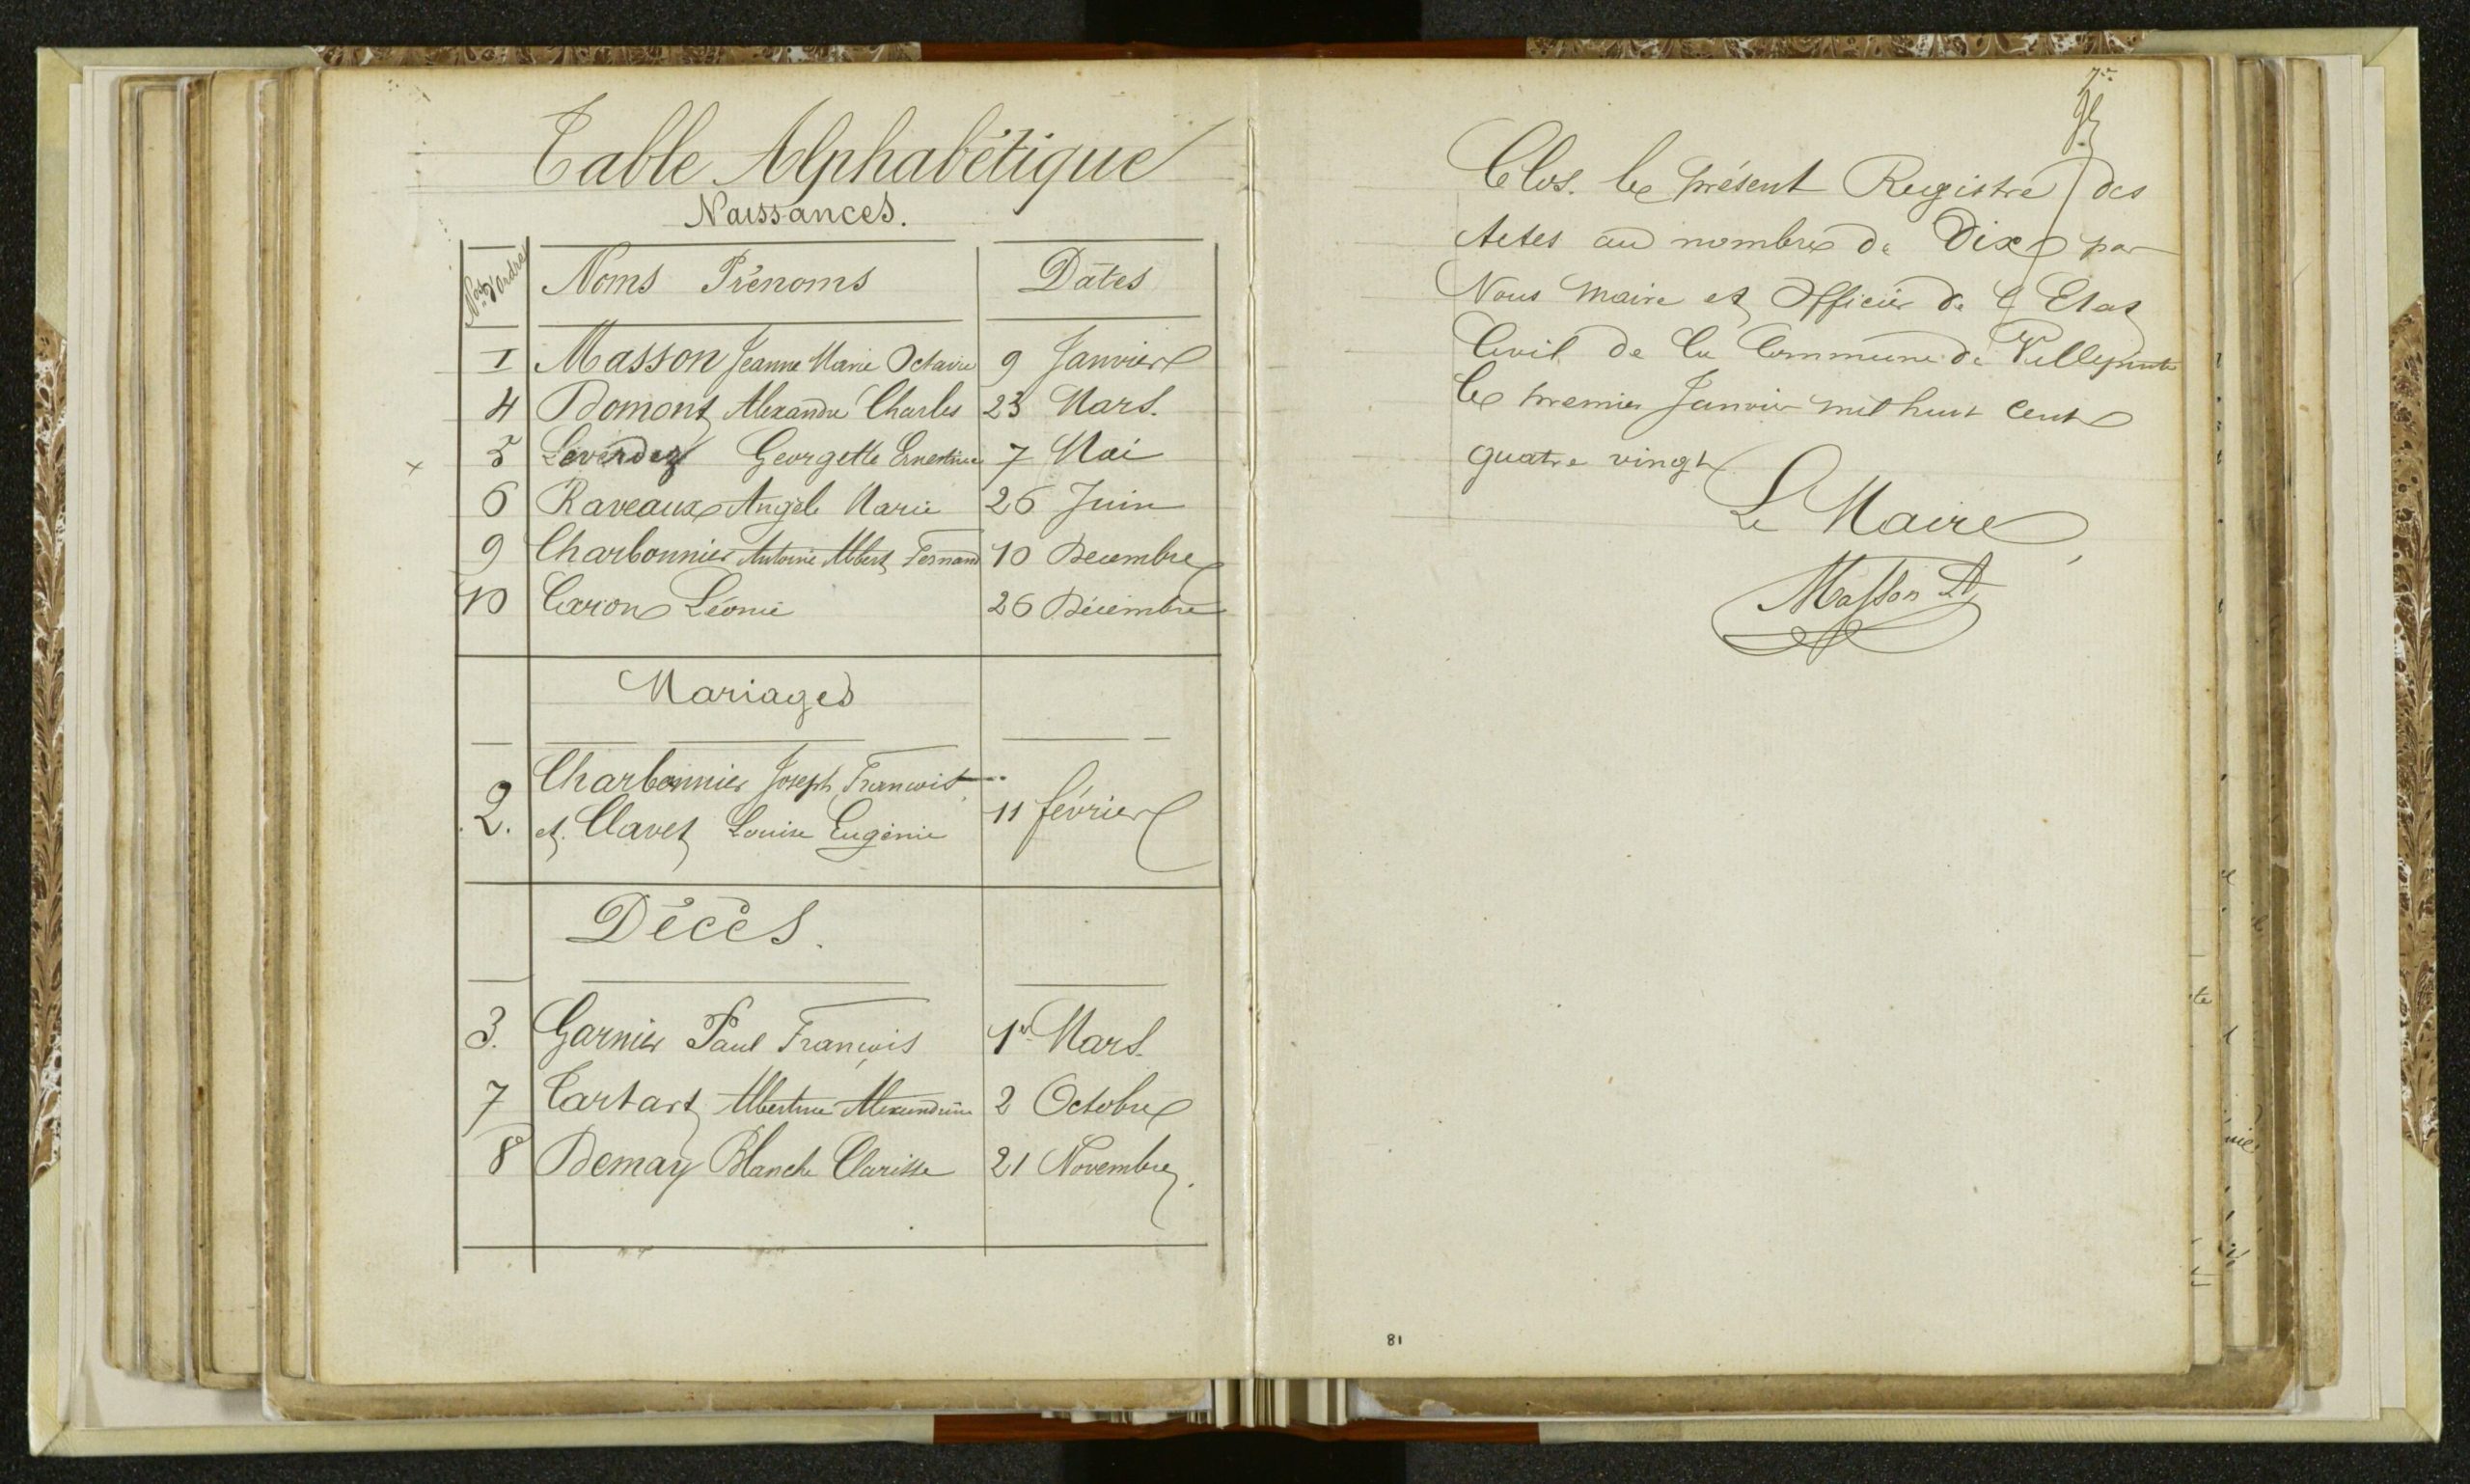 Table Alphabétique
Naissances.
Nos d'ordre Noms Prénoms Dates
1 Masson Jeanne Marie Octavie 9 Janvier
4 Domont Alexandre Charles 23 Mars.
5 Leverdez Georgette Ernestine 7 Mai
6 Raveaux Angèle Marie 26 Juin
9 Charbonnier Antoine Albert Fernand 10 Decembre
10 Caron Léonie 26 Décembre
Mariages
Charbonnier Joseph Francois
2. et Clavet Louise Eugénie 11 février
Décès.
3. Garnier Paul François 1er Mars.
7 Tartart Albertine Alexandrine 2 Octobre
8 Demay Blanche Clarisse 21 Novembre.
Clos. le présent Registre des
Actes au nombre de Dix par
Nous Maire et Officier de l'Etat
Civil de la Commune de Villepinte
le premier Janvier mil huit cent
quatre vingt
Le Maire
Masson
81